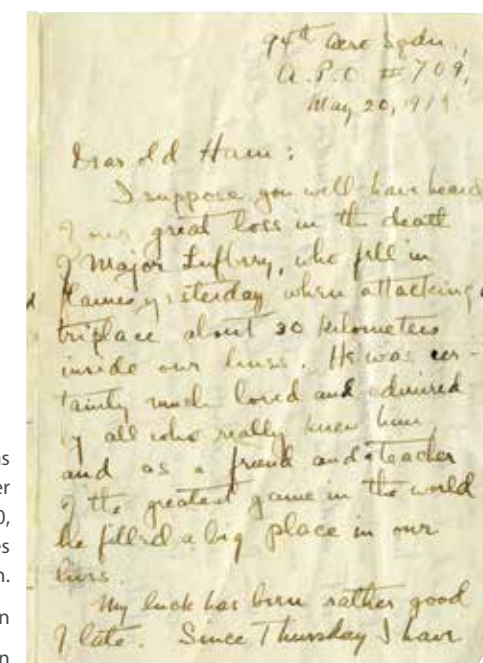 94th Aero Sqdn.,
A.P.O #709,
May 20, 1918
Dear old Ham:
I suppose you will have heard
of our great loss in the death
of Major Lufbery, who fell in
flames yesterday when attacking a
triplace about 30 kilometers
inside our lines. He was cer-
tainly much loved and admired
by all who really knew him
and as a friend and teacher
of the greatest game in the world
he filled a big place in our
lives.
My luck has been rather good
of late. Since Thursday I have
as
er
0,
es
n.
n
n